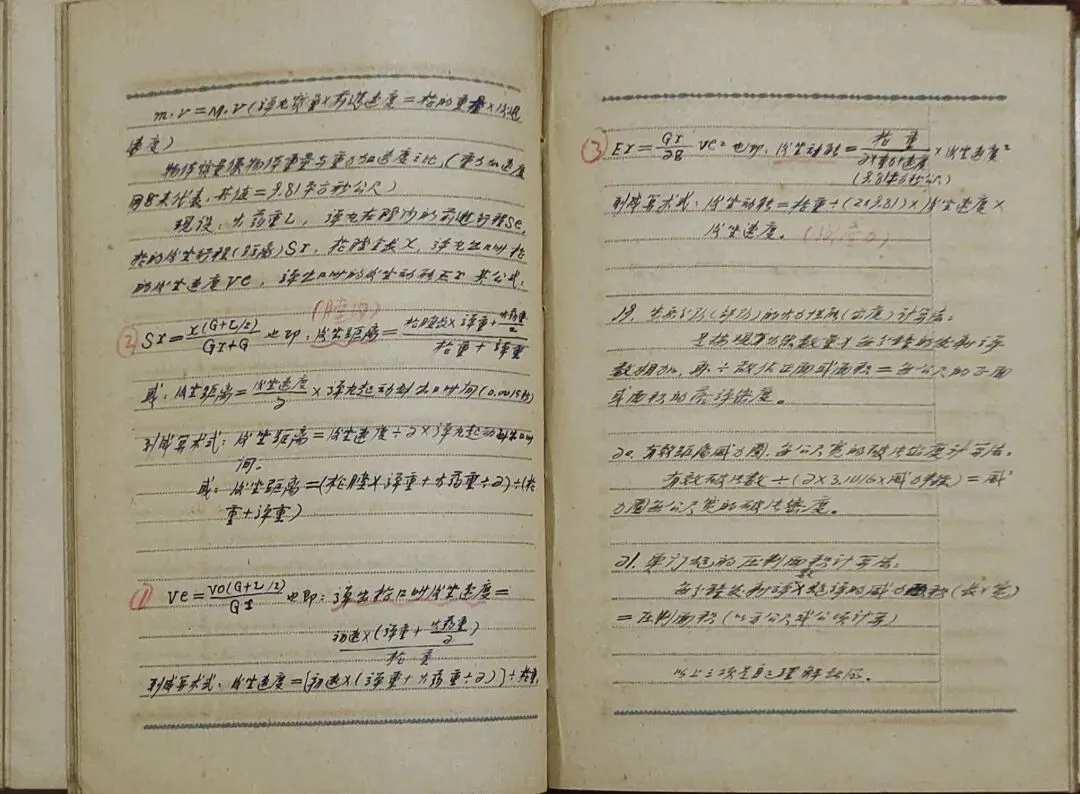 m.v=M.V(弹丸质量×前进速度=枪的重量×后坐
速度)
物体质量系物体重量与重力加速度之比,(重力加速度
用8来代表,其值=9.81平方秒公尺)
现设:火药重L,弹丸在膛内的前进行程Se,
枪的后坐行程(距离)Sr,枪膛全长X,弹丸出口时枪
的后坐速度Ve,弹出口时的后坐动能Er其公式:
(膛内)
② Sr=X(G+L/2)/Gr+G 也即:后坐距离=枪膛长×弹重+火药重/2/枪重+弹重
或:后坐距离=后坐速度/2×弹丸起动到出口时间(0.0015秒)
列成算术式:后坐距离=后坐速度÷2×弹丸起动到出口时
间。
或:后坐距离=(枪膛×弹重+火药重÷2)÷(枪
重+弹重)
① Ve=Vo(G+L/2)/Gr 也即:弹出枪口时后坐速度=
初速×(弹重+火药重/2)/枪重
列成算术式:后坐速度=[初速×(弹重+火药重÷2)]÷枪重
③ Er=Gr/28 Ve² 也即:后坐动能=枪重/2×重力加速度×后坐速度²
(9.81平方秒公尺)
列成算术式:后坐动能=枪重÷(2×9.81)×后坐速度×
后坐速度。
19. 的火力性能(密度)计算法:
是按现有火器数量×每分钟的发射弹
数相加,再÷敌从正面或面积=每公尺的正面
或面积的落弹密度。
20. 有效距离威力圈,每公尺宽的破片密度计算法。
有效破片数÷(2×3.1416×威力半径)=威
力圈每公尺宽的破片密度。
21. 单门炮的压制面积计算法:
每分钟发射弹数×炮弹的威力面积(长×宽)
=压制面积(以方公尺或公顷计算)
以上三项是自己理解的。